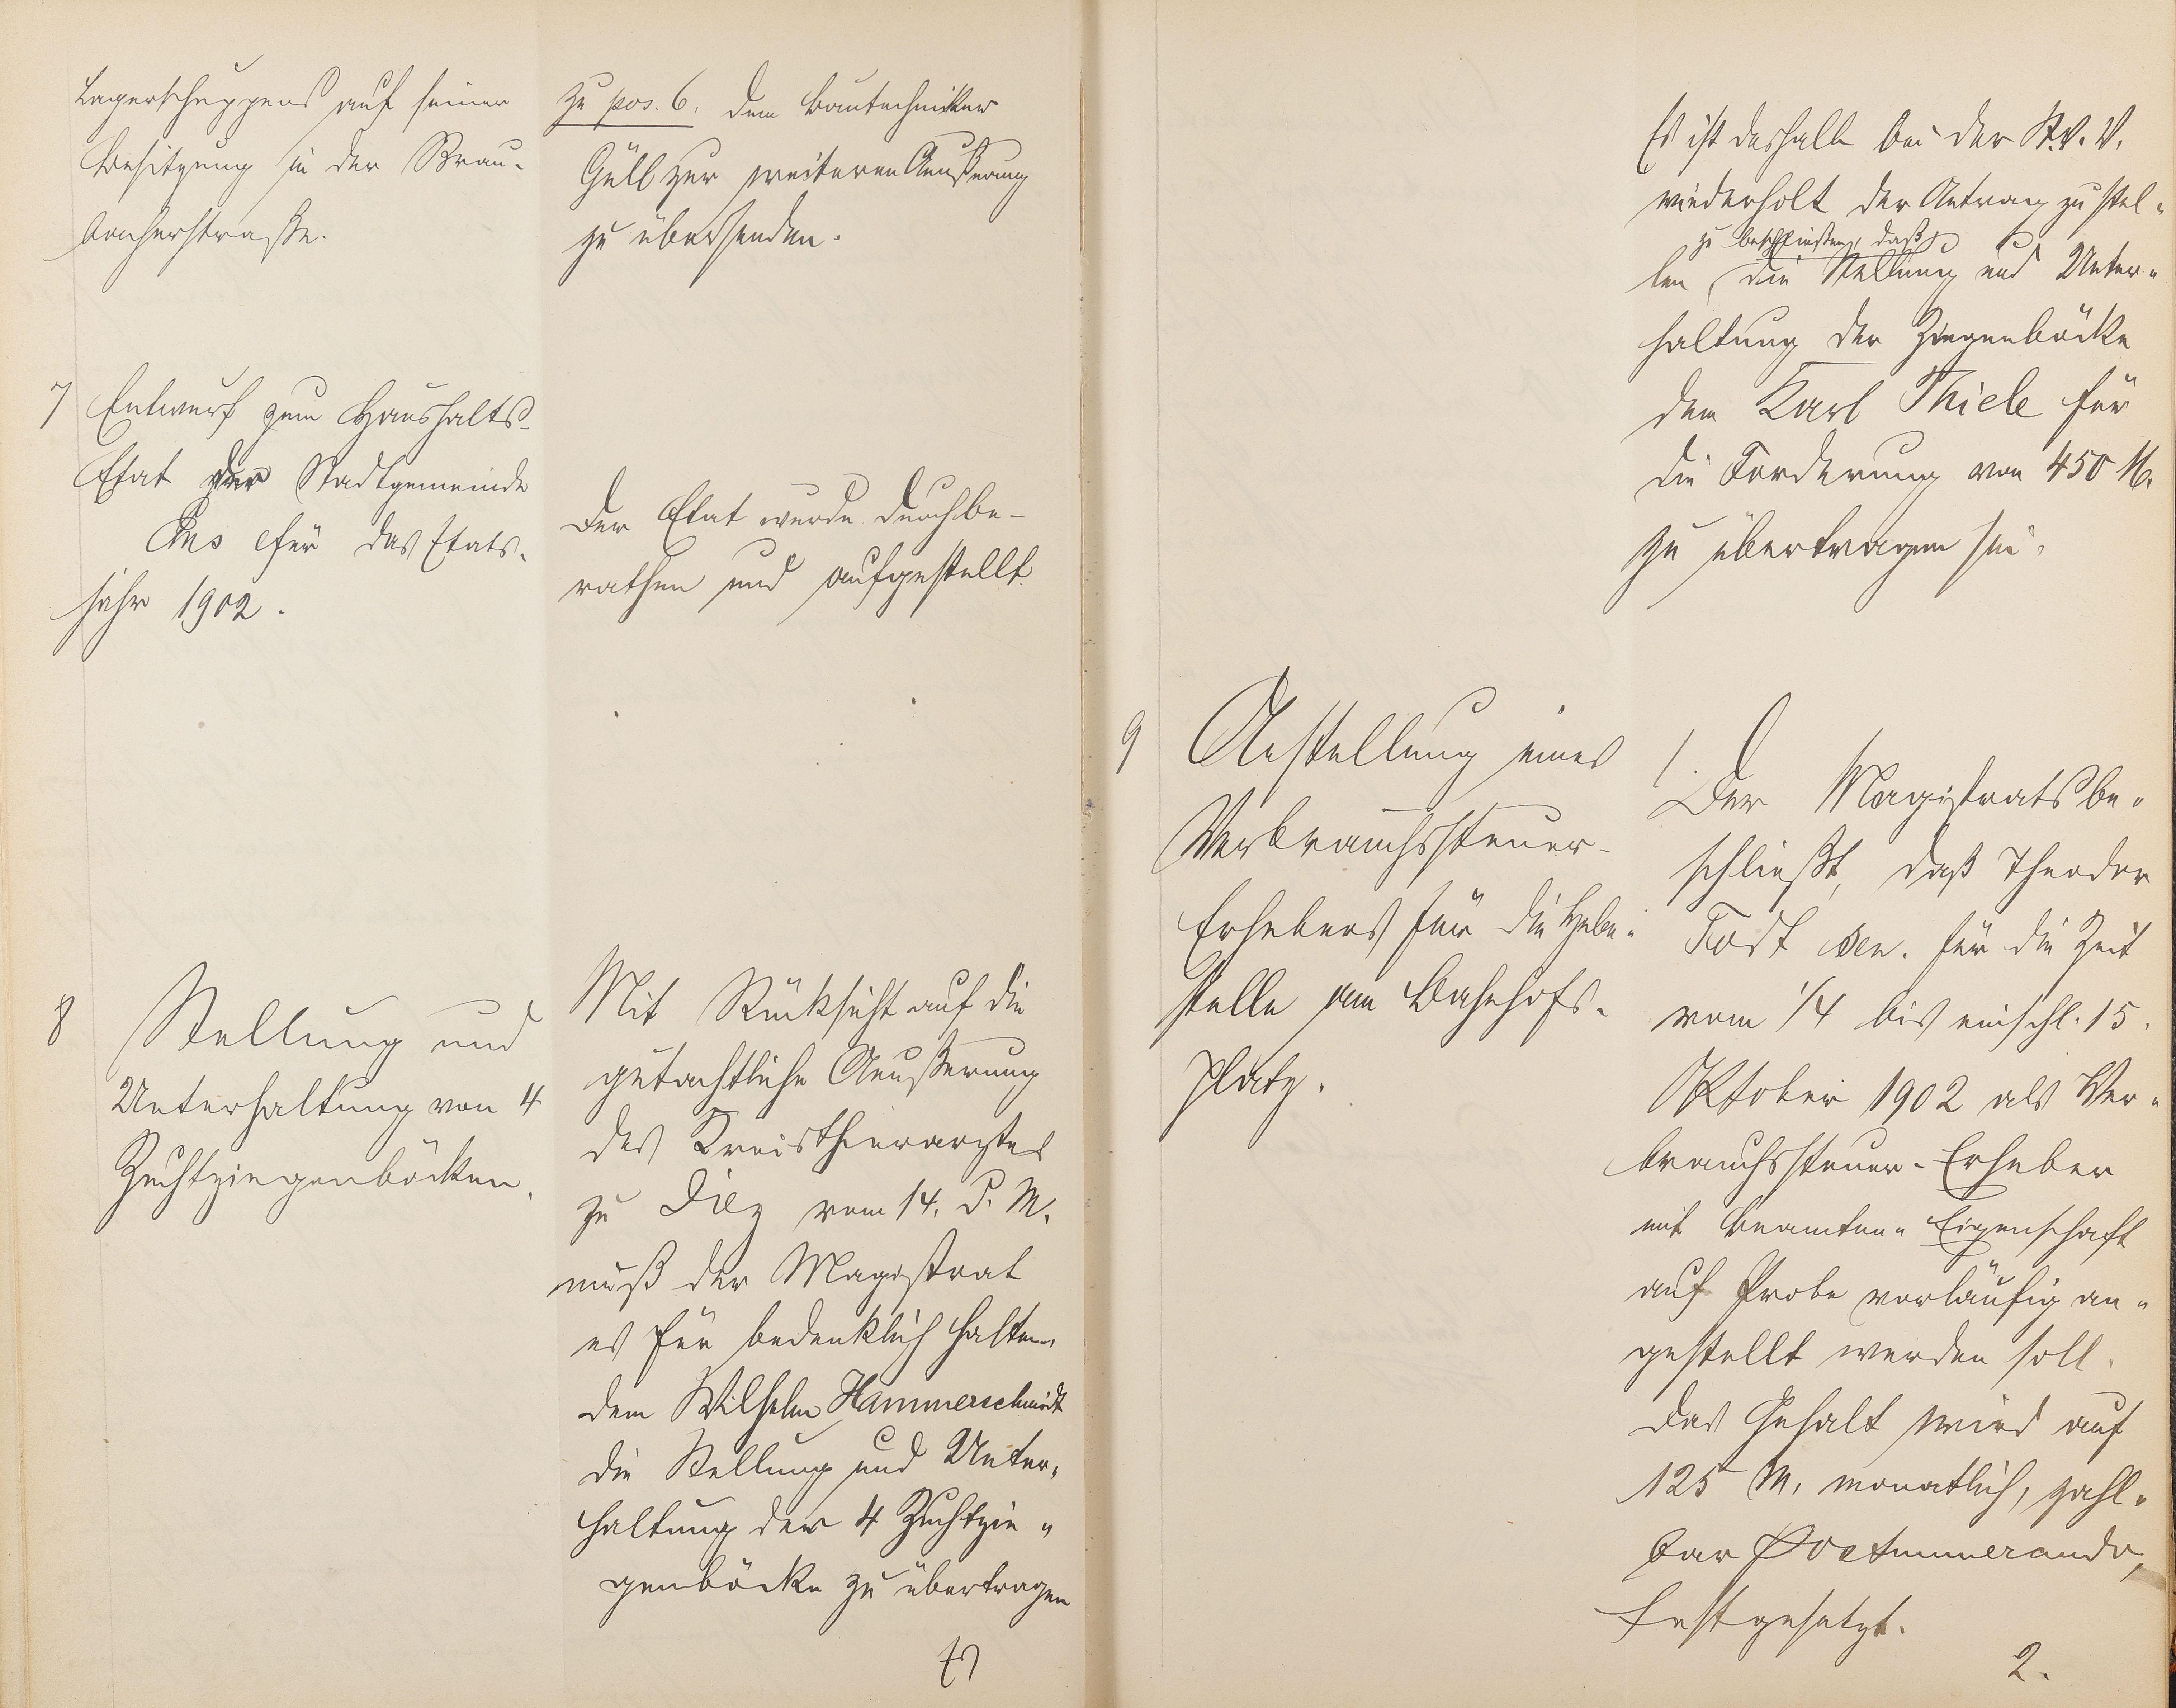 Lagerschuppens auf seiner
Besitzung in der Brau-
bacherstraße.
zu pos. 6. dem Bautechniker
Güll zur weiteren Aeußerung
zu übersenden.
7 Entwurf zum Haushalts-
Etat der Stadtgemeinde
Ems für das Etats-
jahr 1902.
Der Etat wurde durchbe-
rathen und aufgestellt
8 Stellung und
Unterhaltung von 4
Zuchtziegenböcken.
Mit Rücksicht auf die
gutachtliche Aeußerung
des Kreisthierarztes
zu Diez vom 14. d. M.
muß der Magistrat
es für bedenklich halten,
dem Wilhelm Hammerschmidt
die Stellung und Unter-
haltung der 4 Zuchtzie-
genböcke zu übertragen
Es ist deshalb bei der St.V.V.
wiederholt der Antrag zu stel-
zu beschließen, daß
len, die Stellung und Unter-
haltung der Ziegenböcke
dem Karl Thiele für
die Forderung von 450 M.
zu übertragen sei.
9 Anstellung eines
Verbrauchssteuer-
Erhebers für die Hebe-
stelle am Bahnhofs-
platz.
1.
Der Magistrat be-
schließt, daß Theodor
Tost sen. für die Zeit
vom 1/4 bis einschl. 15.
Oktober 1902 als Ver-
brauchssteuer-Erheber
mit Beamten-Eigenschaft
auf Probe vorläufig an-
gestellt werden soll.
Das Gehalt wird auf
125 M. monatlich, zahl-
bar Postnumerando,
festgesetzt.
2.